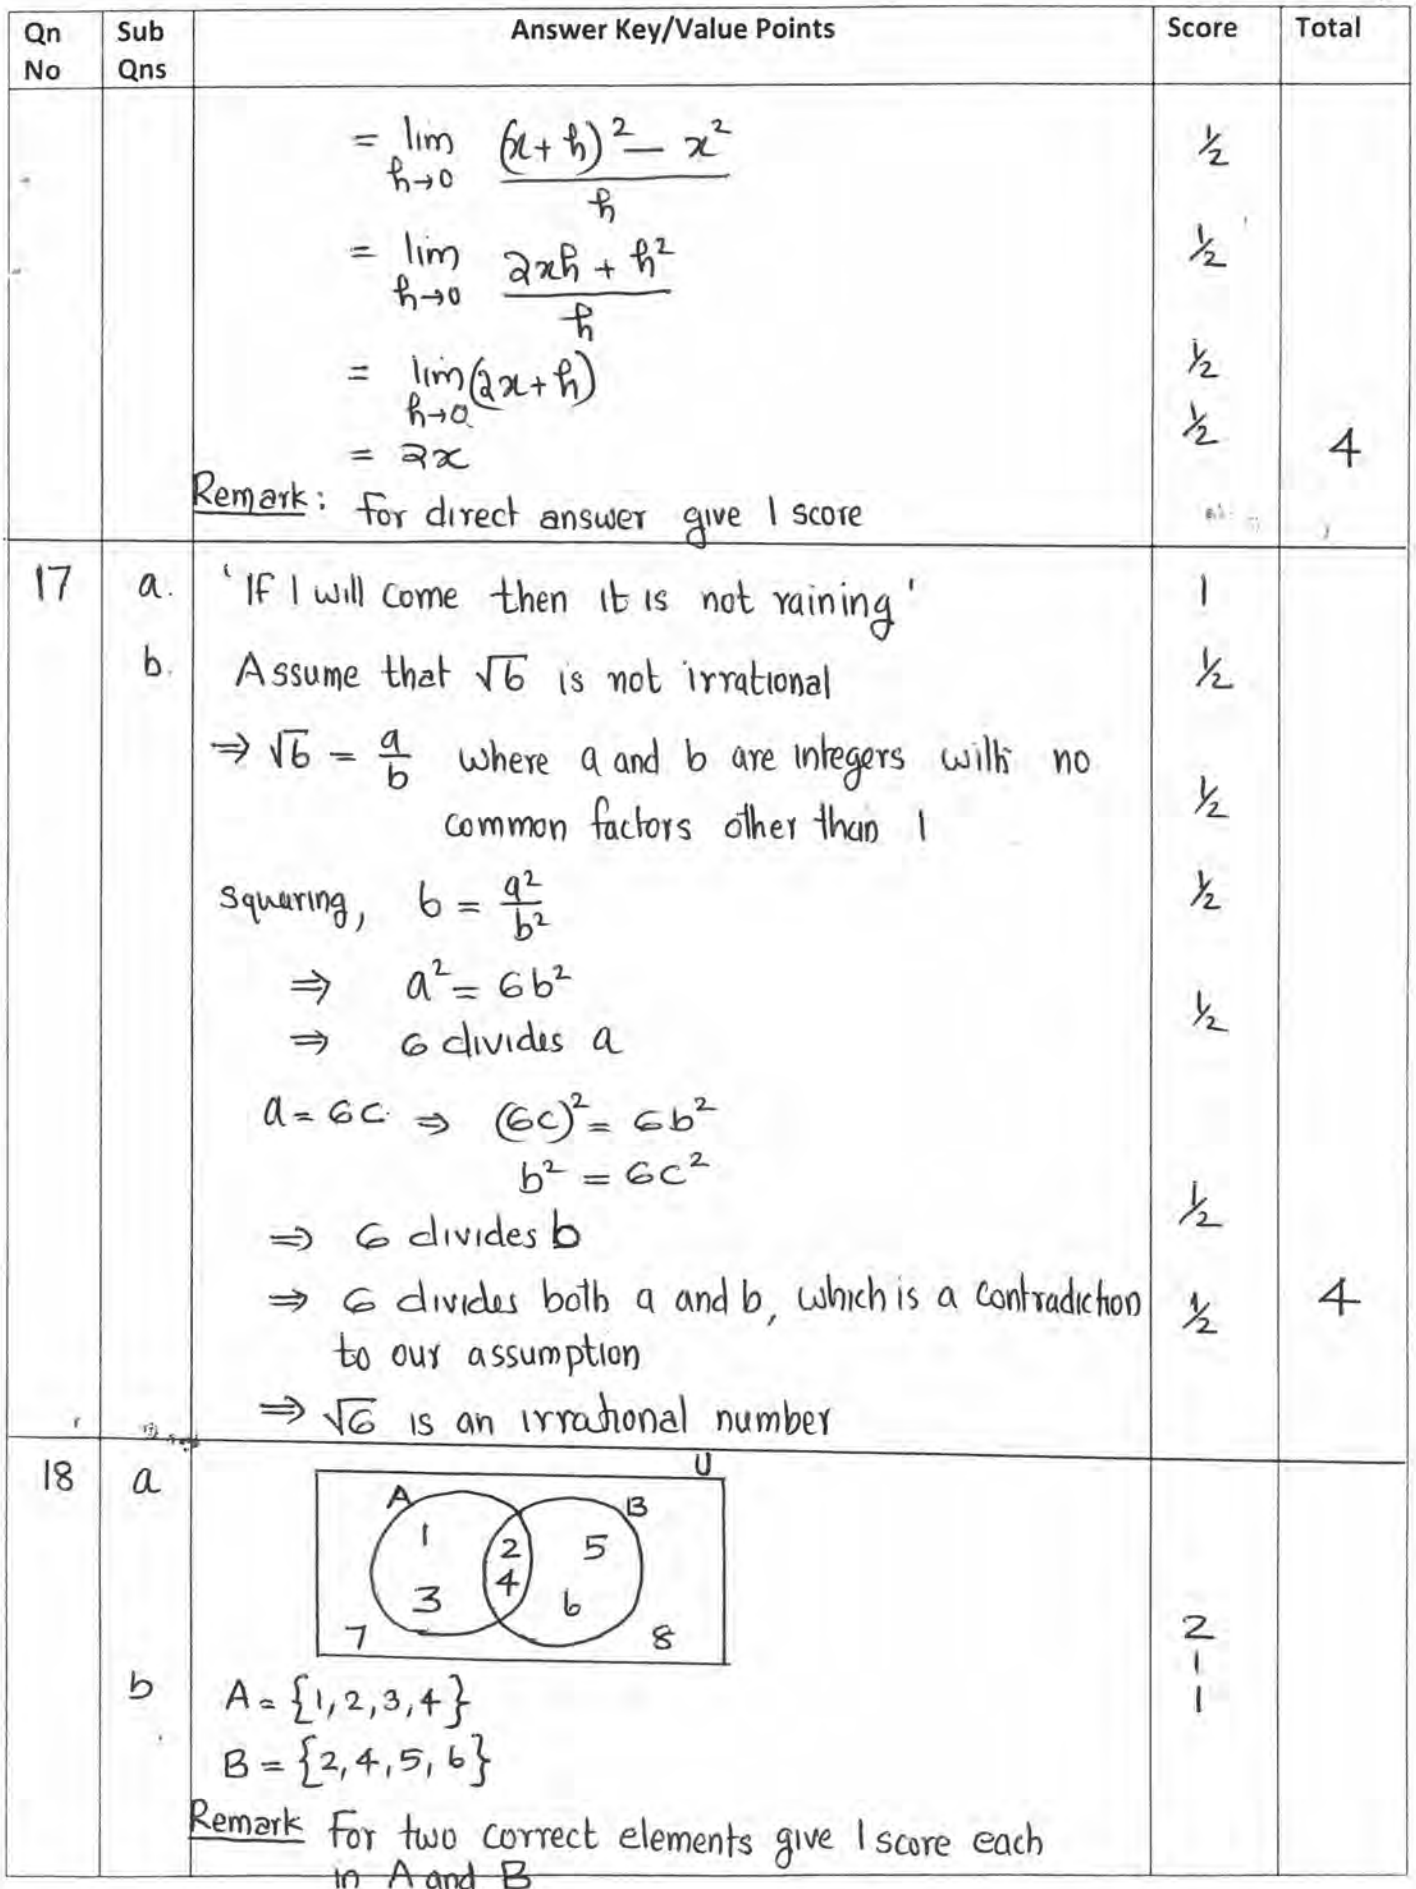 Qn No Sub Qns Answer Key/Value Points Score Total
= lim h→0 ((x+h)² − x²)/h ½
= lim h→0 (2xh + h²)/h ½
= lim h→0 (2x+h) ½
= 2x ½ 4
Remark: For direct answer give 1 score
17 a. 'If I will come then it is not raining' 1
b. Assume that √6 is not irrational ½
⇒ √6 = a/b where a and b are integers with no
common factors other than 1 ½
Squaring, 6 = a²/b² ½
⇒ a² = 6b²
⇒ 6 divides a ½
a = 6c ⇒ (6c)² = 6b²
b² = 6c²
⇒ 6 divides b ½
⇒ 6 divides both a and b, which is a contradiction ½ 4
to our assumption
⇒ √6 is an irrational number
18 a U
A B
1 2 5
3 4 6
7 8 2
b A = {1,2,3,4} 1
B = {2,4,5,6} 1
Remark For two correct elements give 1 score each
in A and B